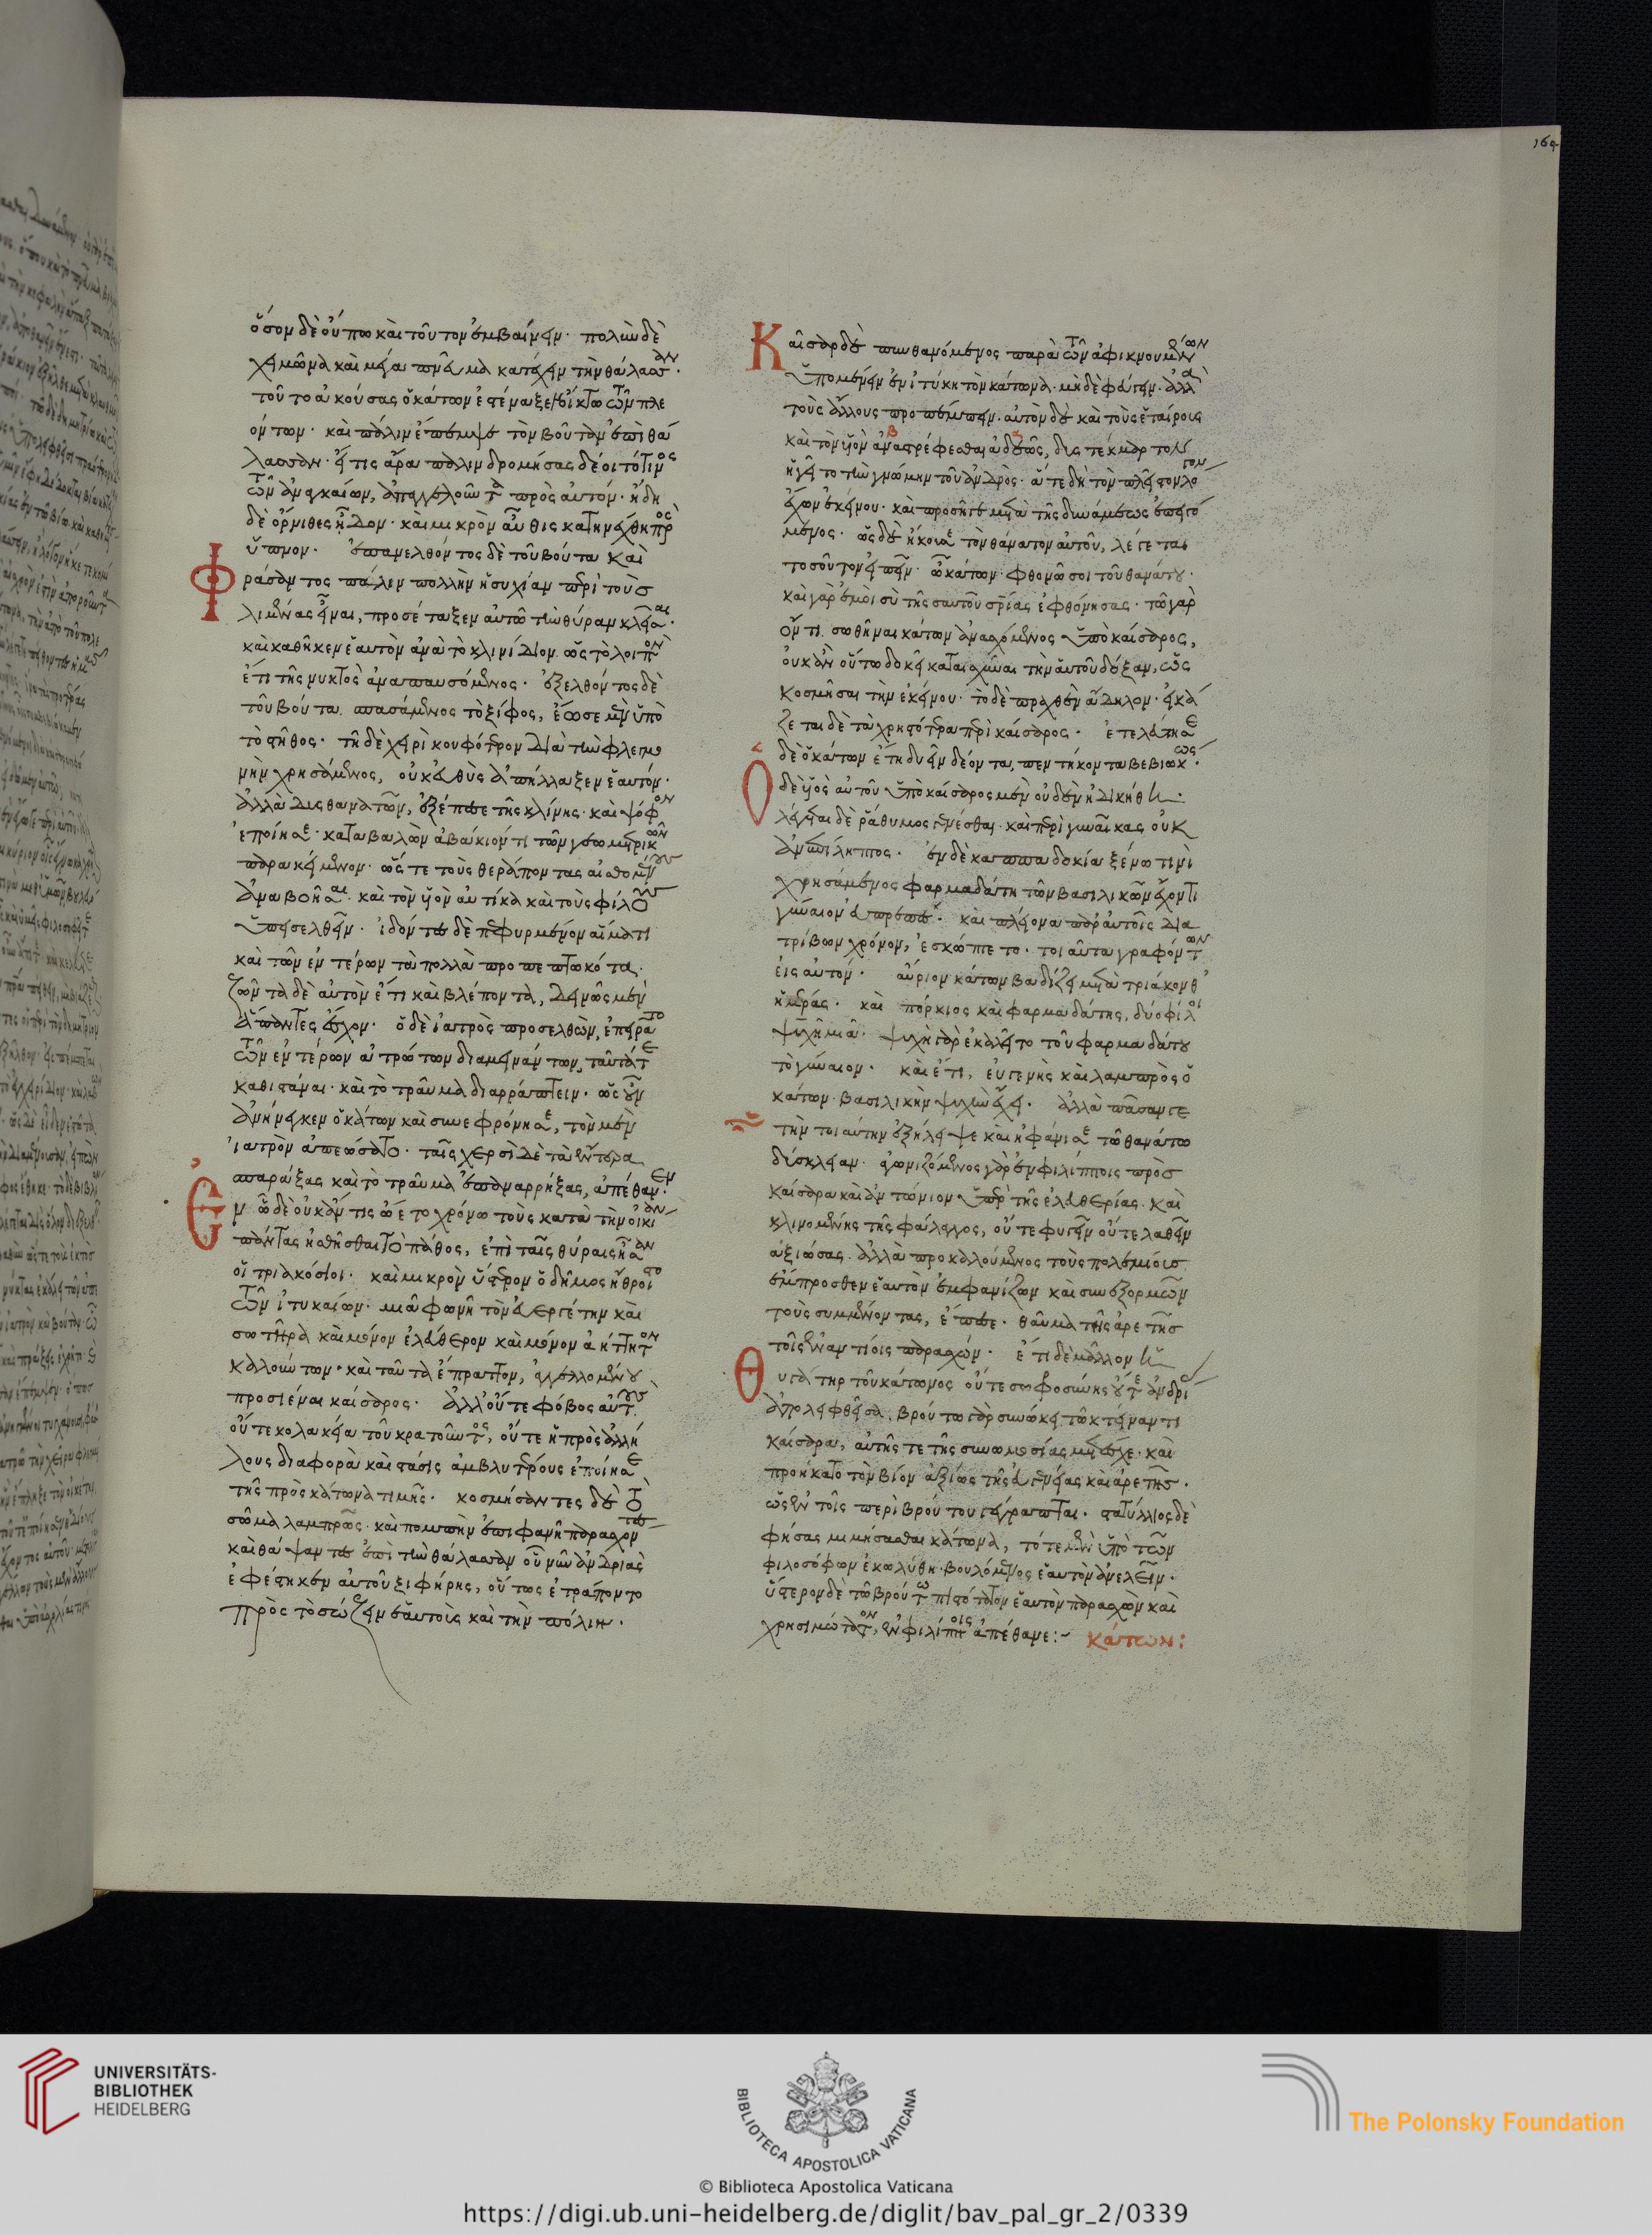 ὅσον δὲ οὔπω καὶ τοῦτον ἐμβαίνειν· πολὺν δὲ
χειμῶνα καὶ μέγα πνεῦμα κατέχειν τὴν θάλασσαν.
τοῦτο ἀκούσας ὁ κάτων ἐστέναξεν οἴκτω τῶν πλε
όντων· καὶ πάλιν ἔπεμψε τὸν βούταν ἐπὶ θά
λασσαν· εἴ τις ἄρα πάλιν δρομήσας δέοιτό τινος
τῶν ἀναγκαίων, ἀπαγγελοῦντα πρὸς αὐτόν· ἤδη
δὲ ὄρνιθες ᾖδον· καὶ μικρὸν αὖθις κατηνέχθη πρὸς
ὕπνον. ἐπανελθόντος δὲ τοῦ βούτα καὶ
Φράσαντος πάλιν πολλὴν ἡσυχίαν περὶ τοὺς
λιμένας εἶναι, προσέταξεν αὐτῶ τὴν θύραν κλεῖσαι.
καὶ καθῆκεν ἑαυτὸν ἀνὰ τὸ κλινίδιον ὡς τὸ λοιπὸν
ἔτι τῆς νυκτὸς ἀναπαυσόμενος. ἐξελθόντος δὲ
τοῦ βούτα σπασάμενος τὸ ξίφος, ἔωσε μὲν ὑπὸ
τὸ στῆθος· τῆ δὲ χειρὶ κουφότερον διὰ τὴν φλεγμο
νὴν χρησάμενος, οὐκ εὐθὺς ἀπήλλαξεν ἑαυτόν.
ἀλλὰ δυσθανατῶν, ἐξέπεσε τῆς κλίνης· καὶ ψόφον
ἐποίησε· καταβαλὼν ἀβάκιόν τι τῶν γεωμετρικῶν
παρακείμενον· ὥστε τοὺς θεράποντας αἰσθομένους
ἀναβοῆσαι· καὶ τὸν υἱὸν αὐτίκα καὶ τοὺς φίλους
ὑπεισελθεῖν. ἰδόντες δὲ πεφυρμένον αἵματι
καὶ τῶν ἐντέρων τὰ πολλὰ προπεπτωκότα.
ζῶντα δὲ αὐτὸν ἔτι καὶ βλέποντα, δεινῶς μὲν
ἅπαντες ἔσχον· ὁ δὲ ἰατρὸς προσελθὼν, ἐπειρᾶτο
τῶν ἐντέρων ἀτρώτων διαμεινάντων, ταῦτά τε
καθιστάναι· καὶ τὸ τραῦμα διαρράπτειν. ὡς οὖν
ἀνήνεγκεν ὁ κάτων καὶ συνεφρόνησε, τὸν μὲν
ἰατρὸν ἀπεώσατο. ταῖς χερσὶ δὲ τὰ ἔντερα
σπαράξας καὶ τὸ τραῦμα ἐπαναρρήξας, ἀπέθανεν.
Ἐν ὧ δὲ οὐκ ἄν τις ὤετο χρόνω τοὺς κατὰ τὴν οἰκίαν
πάντας ἠσθῆσθαι τὸ πάθος, ἐπὶ ταῖς θύραις ἦσαν
οἱ τριακόσιοι. καὶ μικρὸν ὕστερον ὁ δῆμος ἤθροιστο
τῶν ἰτυκαίων. μιᾶ φωνῆ τὸν εὐεργέτην καὶ
σωτῆρα καὶ μόνον ἐλεύθερον καὶ μόνον ἀήττητον
καλούντων· καὶ ταῦτα ἔπραττον, ἀγγελλομένου
προσιέναι καίσαρος. ἀλλ' οὔτε φόβος αὐτοὺς
οὔτε κολακεία τοῦ κρατοῦντος, οὔτε ἡ πρὸς ἀλλή
λους διαφορὰ καὶ στάσις ἀμβλυτέρους ἐποίησε
τῆς πρὸς κάτωνα τιμῆς. κοσμήσαντες δὲ τὸ
σῶμα λαμπρῶς· καὶ πομπὴν ἐπιφανῆ παρασχόντες
καὶ θάψαντες ἐπὶ τὴν θάλασσαν οὗ νῦν ἀνδριὰς
ἐφέστηκεν αὐτοῦ ξιφήρης, οὕτως ἐτράποντο
πρὸς τὸ σώζειν ἑαυτοὺς καὶ τὴν πόλιν.
Καῖσαρ δὲ πυνθανόμενος παρὰ τῶν ἀφικνουμένων
ὑπομένειν ἐν ἰτύκη τὸν κάτωνα· μὴ δὲ φεύγειν. ἀλλὰ
τοὺς ἄλλους προπέμπειν. αὐτὸν δὲ καὶ τοὺς ἑταίρους
καὶ τὸν υἱὸν ἀναστρέφεσθαι ἀδεῶς, δυστέκμαρτον
ἡγεῖτο τὴν γνώμην τοῦ ἀνδρός. ἅτε δὴ τὸν πλεῖστον λόγον
ἔχων ἐκείνου· καὶ προσῄει μετὰ τῆς δυνάμεως ἐπειγό
μενος. ὡς δὲ ἤκουσε τὸν θάνατον αὐτοῦ, λέγεται
τοσοῦτον εἰπεῖν. ὦ κάτων· φθονῶ σοι τοῦ θανάτου.
καὶ γὰρ ἐμοὶ σὺ τῆς σαυτοῦ σωτηρίας ἐφθόνησας. τῶ γὰρ
ὄντι. σωθῆναι κάτων ἀνασχόμενος ὑπὸ καίσαρος,
οὐκ ἂν οὕτω δοκεῖ καταισχῦναι τὴν αὑτοῦ δόξαν, ὡς
κοσμῆσαι τὴν ἐκείνου. τὸ δὲ πραχθὲν ἄδηλον. εἰκά
ζεται δὲ τὰ χρηστότερα περὶ καίσαρος. ἐτελεύτησε
δὲ ὁ κάτων ἔτη δυεῖν δέοντα, πεντήκοντα βεβιωκώς.
Ὁ δὲ υἱὸς αὐτοῦ ὑπὸ καίσαρος μὲν οὐδὲν ἠδικήθη.
λέγεται δὲ ῥάθυμος γενέσθαι. καὶ περὶ γυναῖκας οὐκ
ἀνεπίληπτος. ἐν δὲ καππαδοκία ξένω τινὶ
χρησάμενος φαρμαδάτη τῶν βασιλικῶν ἔχοντι
γύναιον εὐπρεπὲς· καὶ πλείονα παρ' αὐτοῖς δια
τρίβων χρόνον, ἐσκώπτετο. τοιαῦτα γραφόντων
εἰς αὐτόν. αὔριον κάτων βαδίζει μετὰ τριάκονθ'
ἡμέρας. καὶ πόρκιος καὶ φαρμαδάτης, δύο φίλοι
ψυχὴ μία. ψυχὴ γὰρ ἐκαλεῖτο τοῦ φαρμαδάτου
τὸ γύναιον. καὶ ἔτι, εὐγενὴς καὶ λαμπρὸς ὁ
κάτων. βασιλικὴν ψυχὴν ἔχει. ἀλλὰ πᾶσάν γε
τὴν τοιαύτην ἐξήλειψε καὶ ἠφάνισε τῶ θανάτω
δύσκλειαν. ἀγωνιζόμενος γὰρ ἐν φιλίπποις πρὸς
καίσαρα καὶ ἀντώνιον ὑπὲρ τῆς ἐλευθερίας. καὶ
κλινομένης τῆς φάλαγγος, οὔτε φυγεῖν οὔτε λαθεῖν
ἀξιώσας. ἀλλὰ προκαλούμενος τοὺς πολεμίους
ἔμπροσθεν ἑαυτὸν ἐμφανίζων καὶ συνεξορμῶν
τοὺς συμμένοντας, ἔπεσε. θαῦμα τῆς ἀρετῆς
τοῖς ἐναντίοις παρασχών. ἔτι δὲ μᾶλλον ἡ
Θυγάτηρ τοῦ κάτωνος οὔτε σωφροσύνης οὔτε ἀνδρίας
ἀπολειφθεῖσα. βρούτω γὰρ συνώκει τῶ κτείναντι
καίσαρα, αὐτῆς τε τῆς συνωμοσίας μετέσχε. καὶ
προήκατο τὸν βίον ἀξίως τῆς εὐγενείας καὶ ἀρετῆς.
ὡς ἐν τοῖς περὶ βρούτου γέγραπται. στατύλλιος δὲ
φήσας μιμήσασθαι κάτωνα, τότε μὲν ὑπὸ τῶν
φιλοσόφων ἐκωλύθη. βουλόμενος ἑαυτὸν ἀνελεῖν.
ὕστερον δὲ τῶ βρούτω πιστότατον ἑαυτὸν παρασχὼν καὶ
χρησιμώτατον, ἐν φιλίπποις ἀπέθανε:– κάτων:
164
UNIVERSITÄTS-
BIBLIOTHEK
HEIDELBERG
BIBLIOTECA APOSTOLICA VATICANA
The Polonsky Foundation
© Biblioteca Apostolica Vaticana
https://digi.ub.uni-heidelberg.de/diglit/bav_pal_gr_2/0339